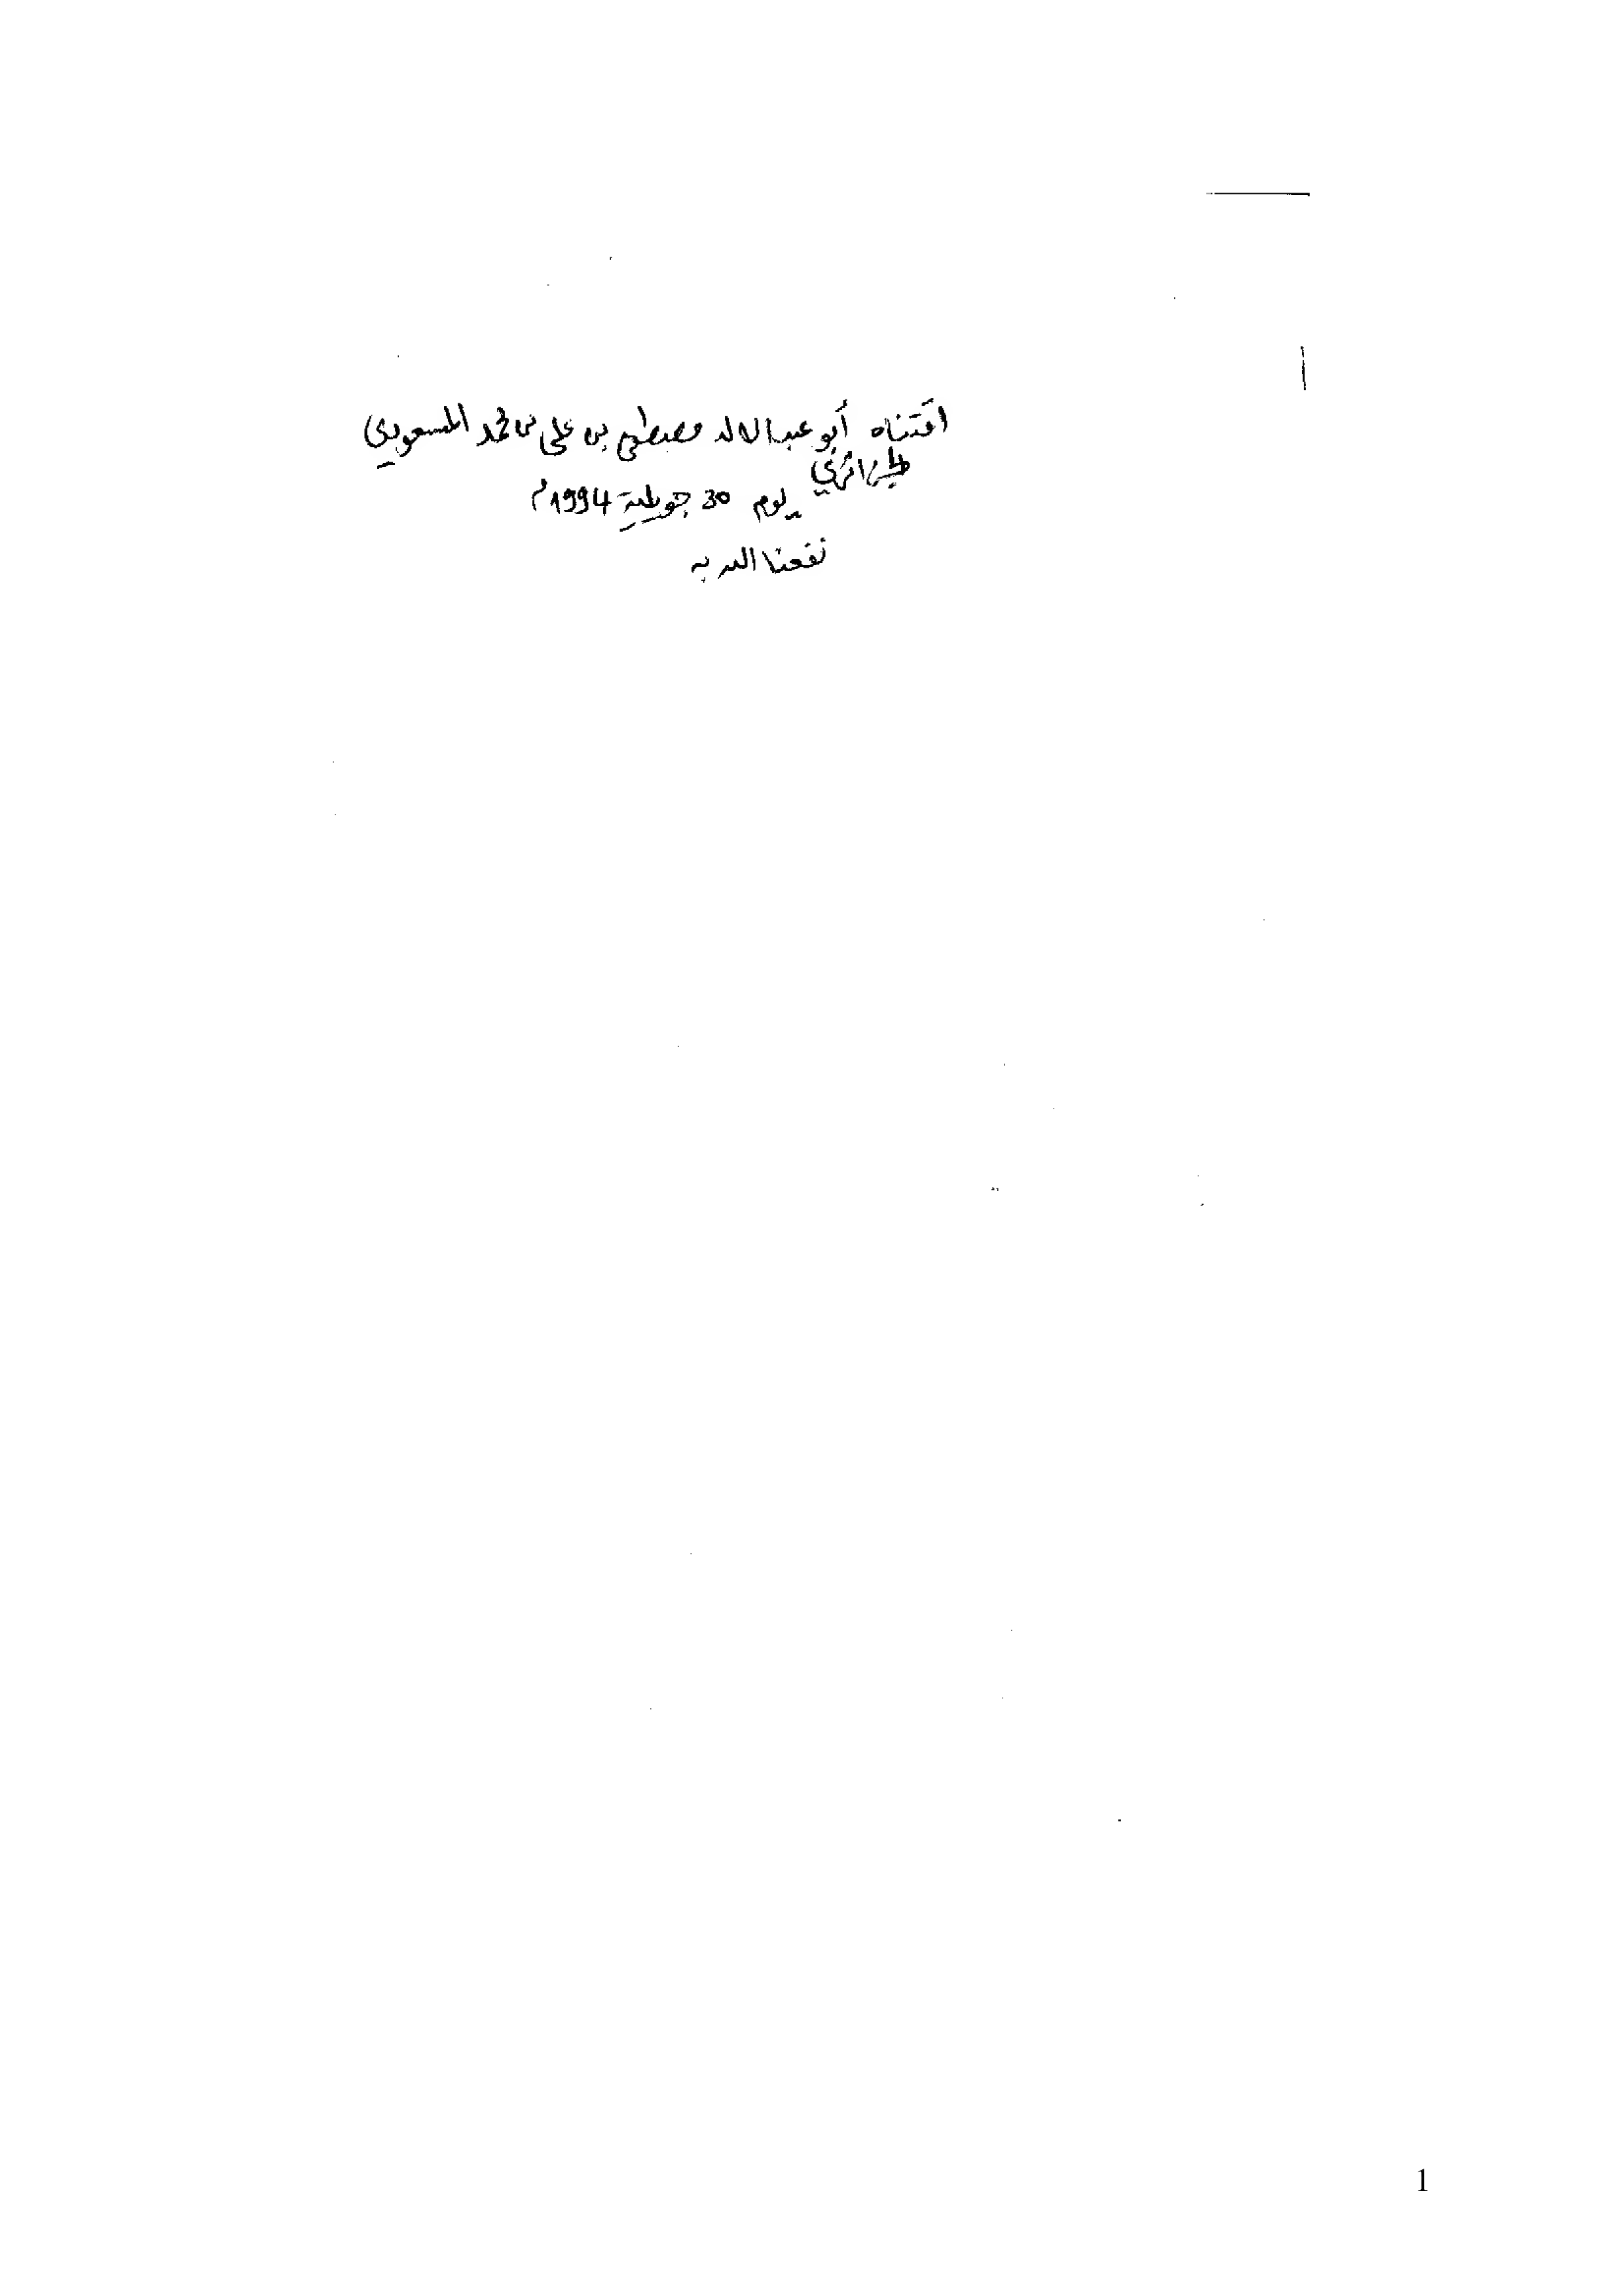 اقتناه أبو عبد الاله مصطفى بن علي بن محمد المسعودي
الجزائري
يوم 30 جويلية 1994م
نفعنا الله به
1